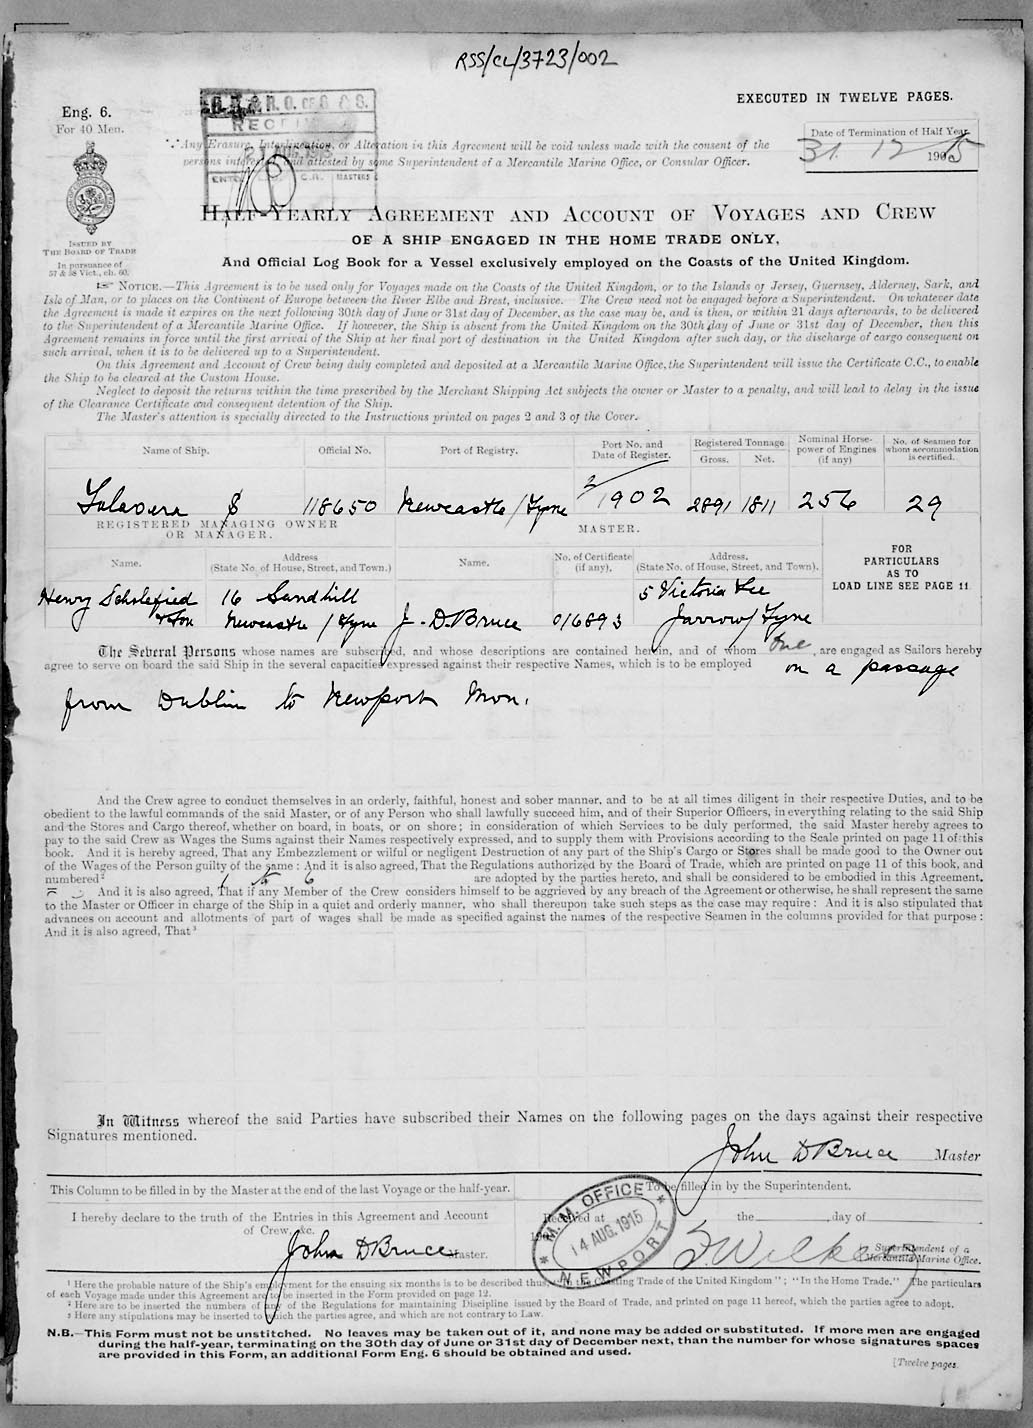 RSS/CL/3723/002
EXECUTED IN TWELVE PAGES.
Eng. 6.
For 40 Men.
Any Erasure, Interlineation, or Alteration in this Agreement will be void unless made with the consent of the
persons interested and attested by some Superintendent of a Mercantile Marine Office, or Consular Officer.
Date of Termination of Half Year
31. 12 1915
HALF-YEARLY AGREEMENT AND ACCOUNT OF VOYAGES AND CREW
OF A SHIP ENGAGED IN THE HOME TRADE ONLY,
And Official Log Book for a Vessel exclusively employed on the Coasts of the United Kingdom.
ISSUED BY
THE BOARD OF TRADE
In pursuance of
57 & 58 Vict., ch. 60.
NOTICE.—This Agreement is to be used only for Voyages made on the Coasts of the United Kingdom, or to the Islands of Jersey, Guernsey, Alderney, Sark, and
Isle of Man, or to places on the Continent of Europe between the River Elbe and Brest, inclusive.— The Crew need not be engaged before a Superintendent. On whatever date
the Agreement is made it expires on the next following 30th day of June or 31st day of December, as the case may be, and is then, or within 21 days afterwards, to be delivered
to the Superintendent of a Mercantile Marine Office. If however, the Ship is absent from the United Kingdom on the 30th day of June or 31st day of December, then this
Agreement remains in force until the first arrival of the Ship at her final port of destination in the United Kingdom after such day, or the discharge of cargo consequent on
such arrival, when it is to be delivered up to a Superintendent.
On this Agreement and Account of Crew being duly completed and deposited at a Mercantile Marine Office, the Superintendent will issue the Certificate C.C., to enable
the Ship to be cleared at the Custom House.
Neglect to deposit the returns within the time prescribed by the Merchant Shipping Act subjects the owner or Master to a penalty, and will lead to delay in the issue
of the Clearance Certificate and consequent detention of the Ship.
The Master's attention is specially directed to the Instructions printed on pages 2 and 3 of the Cover.
Name of Ship. Official No. Port of Registry. Port No. and Date of Register. Registered Tonnage Gross. Net. Nominal Horse-power of Engines (if any) No. of Seamen for whom accommodation is certified.
Talavera S 118650 Newcastle/Tyne 2/1902 2891 1811 256 29
REGISTERED MANAGING OWNER
OR MANAGER.
MASTER.
Name. Address (State No. of House, Street, and Town.) Name. No. of Certificate (if any). Address. (State No. of House, Street, and Town).
FOR
PARTICULARS
AS TO
LOAD LINE SEE PAGE 11
Henry Scholefield 16 Sandhill 5 Victoria Tce
& Son Newcastle / Tyne J. D. Bruce 016893 Jarrow/Tyne
The Several Persons whose names are subscribed, and whose descriptions are contained herein, and of whom One, are engaged as Sailors hereby
agree to serve on board the said Ship in the several capacities expressed against their respective Names, which is to be employed on a passage
from Dublin to Newport Mon.
And the Crew agree to conduct themselves in an orderly, faithful, honest and sober manner, and to be at all times diligent in their respective Duties, and to be
obedient to the lawful commands of the said Master, or of any Person who shall lawfully succeed him, and of their Superior Officers, in everything relating to the said Ship
and the Stores and Cargo thereof, whether on board, in boats, or on shore; in consideration of which Services to be duly performed, the said Master hereby agrees to
pay to the said Crew as Wages the Sums against their Names respectively expressed, and to supply them with Provisions according to the Scale printed on page 11 of this
book. And it is hereby agreed, That any Embezzlement or wilful or negligent Destruction of any part of the Ship's Cargo or Stores shall be made good to the Owner out
of the Wages of the Person guilty of the same: And it is also agreed, That the Regulations authorized by the Board of Trade, which are printed on page 11 of this book, and
numbered² 1 to 6 are adopted by the parties hereto, and shall be considered to be embodied in this Agreement.
And it is also agreed, That if any Member of the Crew considers himself to be aggrieved by any breach of the Agreement or otherwise, he shall represent the same
to the Master or Officer in charge of the Ship in a quiet and orderly manner, who shall thereupon take such steps as the case may require: And it is also stipulated that
advances on account and allotments of part of wages shall be made as specified against the names of the respective Seamen in the columns provided for that purpose:
And it is also agreed, That³
In Witness whereof the said Parties have subscribed their Names on the following pages on the days against their respective
Signatures mentioned.
John D Bruce Master
This Column to be filled in by the Master at the end of the last Voyage or the half-year.
To be filled in by the Superintendent.
I hereby declare to the truth of the Entries in this Agreement and Account
of Crew, &c.
John D Bruce Master.
Received at the day of
M.M. OFFICE
14 AUG. 1915
NEWPORT
Superintendent of a
Mercantile Marine Office.
¹ Here the probable nature of the Ship's employment for the ensuing six months is to be described thus "In the Coasting Trade of the United Kingdom"; "In the Home Trade." The particulars
of each Voyage made under this Agreement are to be inserted in the Form provided on page 12.
² Here are to be inserted the numbers of any of the Regulations for maintaining Discipline issued by the Board of Trade, and printed on page 11 hereof, which the parties agree to adopt.
³ Here any stipulations may be inserted to which the parties agree, and which are not contrary to Law.
N.B.—This Form must not be unstitched. No leaves may be taken out of it, and none may be added or substituted. If more men are engaged
during the half-year, terminating on the 30th day of June or 31st day of December next, than the number for whose signatures spaces
are provided in this Form, an additional Form Eng. 6 should be obtained and used.
[Twelve pages.